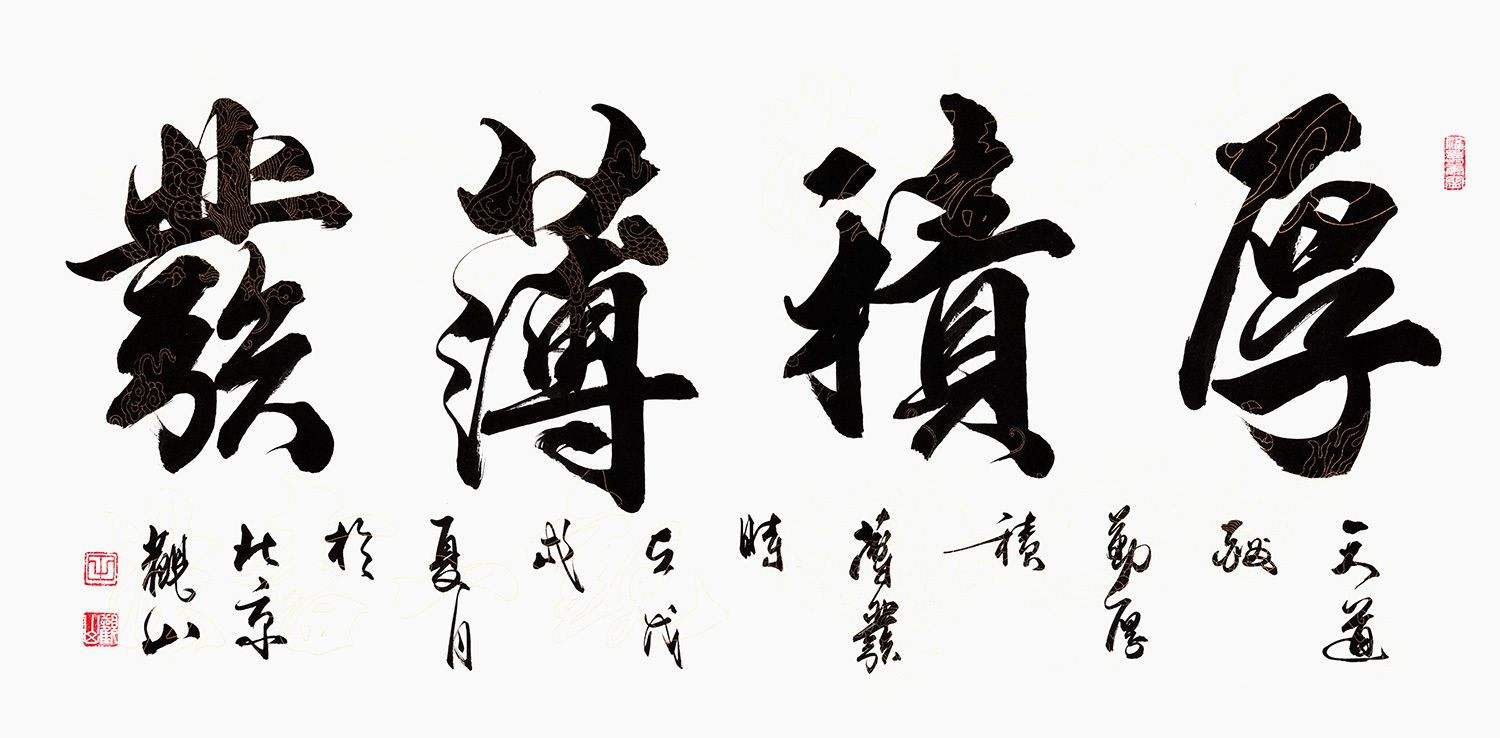 厚積薄發
天道
酬
勤厚
積
薄發
時
在戊
戌
夏月
於
北京
觀山